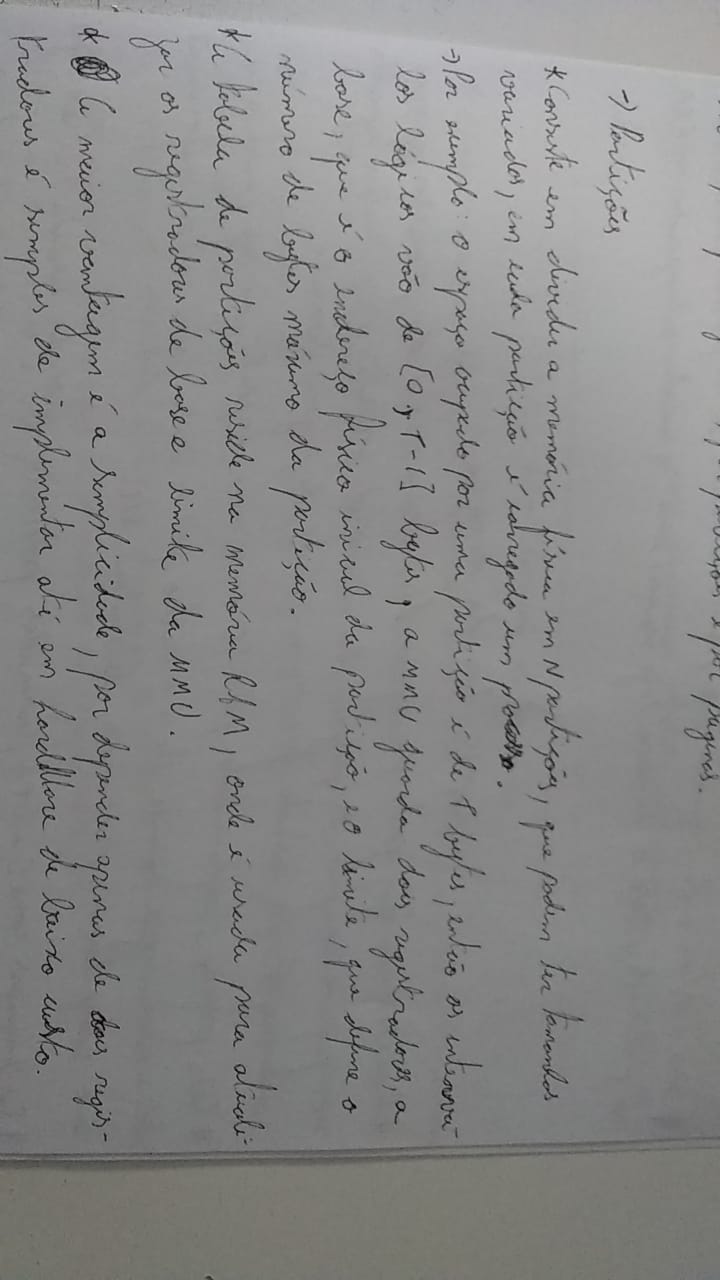 por partições e por páginas.
-> Partições
*Consiste em dividir a memória física em N partições, que podem ter tamanhos
variados, em cada partição é carregado um processo.
-> Por exemplo: o espaço ocupado por uma partição é de T bytes, então os interva-
los lógicos vão de [0, T-1] bytes, a MMU guarda dois registradores, a
base, que é o endereço físico inicial da partição, e o limite, que define o
número de bytes máximo da partição.
*A tabela de partições reside na memória RAM, onde é usada para atuali-
zar os registradores de base e limite da MMU.
* A maior vantagem é a simplicidade, por depender apenas de dois regis-
tradores é simples de implementar até em hardware de baixo custo.